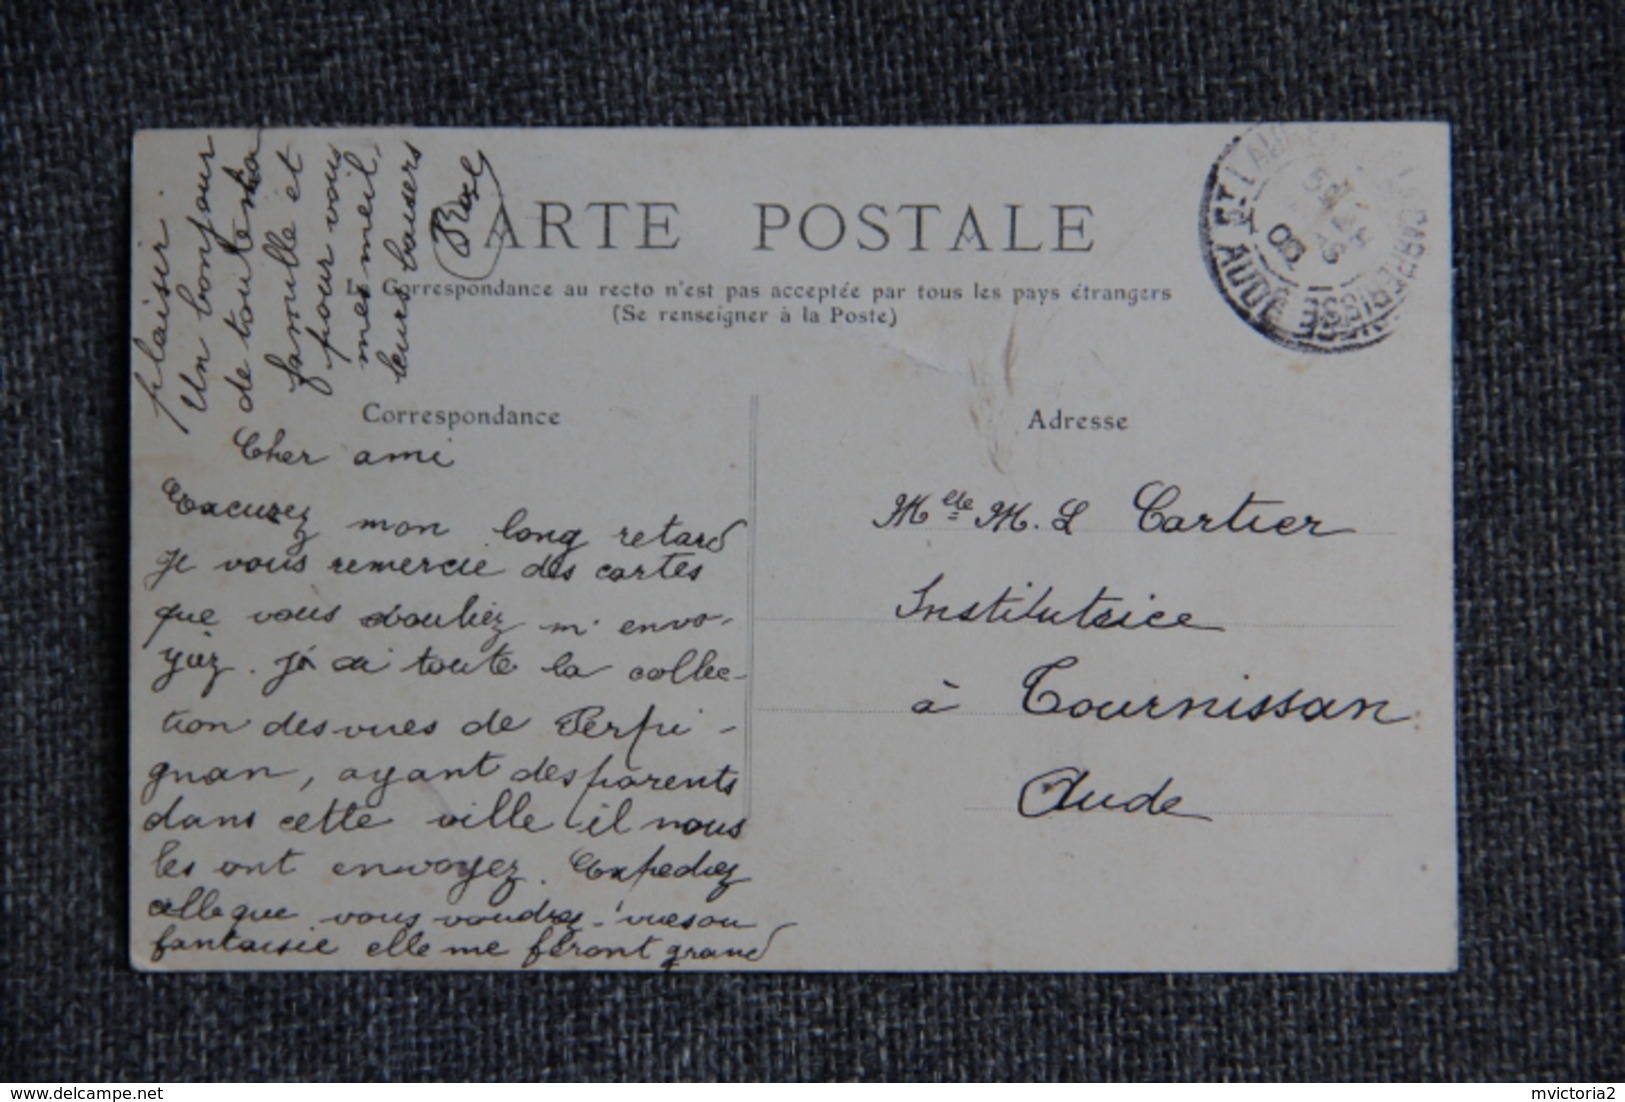 CARTE POSTALE
La Correspondance au recto n'est pas acceptée par tous les pays étrangers
(Se renseigner à la Poste)
Correspondance
Adresse
Cher ami
Excusez mon long retard
Je vous remercie des cartes
que vous vouliez m'envo-
yiez. J'ai toute la collec-
tion des vues de Perpi-
gnan, ayant des parents
dans cette ville il nous
les ont envoyez. Expediez
celle que vous voudrez vues ou
fantaisie elle me feront grand
plaisir.
Un bonjour
de toute ma
famille et
pour vous
mes meil-
leurs baisers
Melle M. L Cartier
Institutrice
à Tournissan
Aude
ST LAURENT CABRERISSE
AUDE
08
delcampe.net
mvictoria2